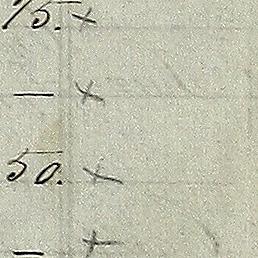 75. x
— x
50. x
— x